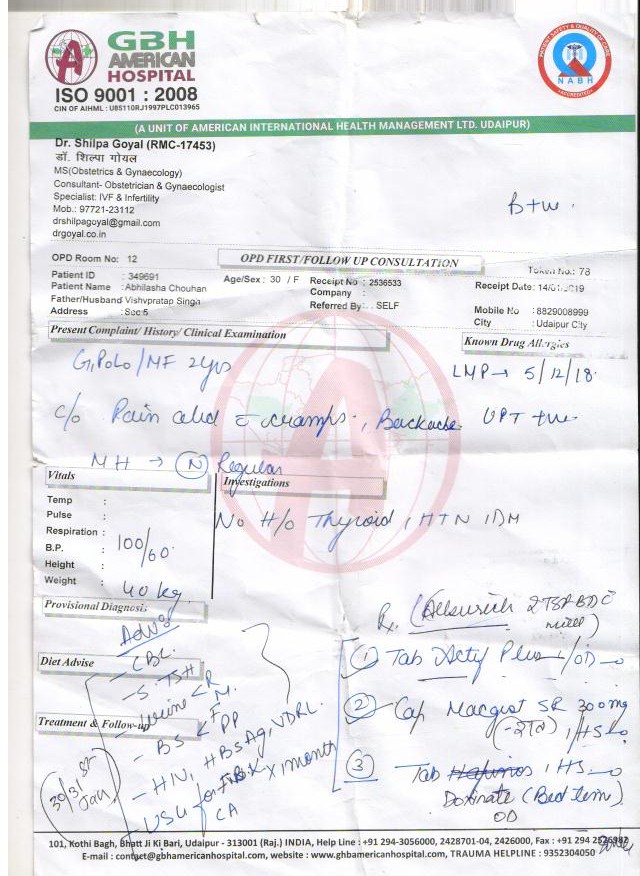 GBH
AMERICAN
HOSPITAL
PATIENT SAFETY & QUALITY OF CARE
NABH
ACCREDITED
ISO 9001 : 2008
CIN OF AIHML : U85110RJ1997PLC013965
(A UNIT OF AMERICAN INTERNATIONAL HEALTH MANAGEMENT LTD. UDAIPUR)
Dr. Shilpa Goyal (RMC-17453)
डॉ. शिल्पा गोयल
MS(Obstetrics & Gynaecology)
Consultant- Obstetrician & Gynaecologist
Specialist: IVF & Infertility
Mob.: 97721-23112
drshilpagoyal@gmail.com
drgoyal.co.in
B+ve.
OPD Room No: 12
OPD FIRST/FOLLOW UP CONSULTATION
Token No.: 78
Patient ID : 349691 Age/Sex : 30 / F Receipt No : 2536533 Receipt Date: 14/01/2019
Patient Name : Abhilasha Chouhan Company :
Father/Husband Vishvpratap Singh Referred By : SELF Mobile No : 8829008999
Address : Sec 5 City : Udaipur City
Present Complaint/ History/ Clinical Examination
Known Drug Allergies
G1P0L0/MF 2yrs
LMP → 5/12/18.
c/o Pain abd c cramps, Backache UPT +ve
MH → (N) Regular
Vitals
Investigations
Temp :
Pulse :
Respiration :
B.P. : 100/60.
Height :
Weight : 40 kg.
No H/o Thyroid, HTN, DM
Provisional Diagnosis
Adv
Rx 2TSP BD c milk)
- CBC
Diet Advise
- S. TSH
- Urine < R M.
(1) Tab Plus 1 OD
(2) Cap SR 300mg
1 HS
Treatment & Follow-up
- BS < F PP
- HIV, HBsAg, VDRL.
- USG for x 1 month
CA
30/31st Jan
(3) Tab 1 HS
Doxinate (Bed time)
OD
101, Kothi Bagh, Bhatt Ji Ki Bari, Udaipur - 313001 (Raj.) INDIA, Help Line : +91 294-3056000, 2428701-04, 2426000, Fax : +91 294 2526982
E-mail : contact@gbhamericanhospital.com, website : www.gbhamericanhospital.com, TRAUMA HELPLINE : 9352304050